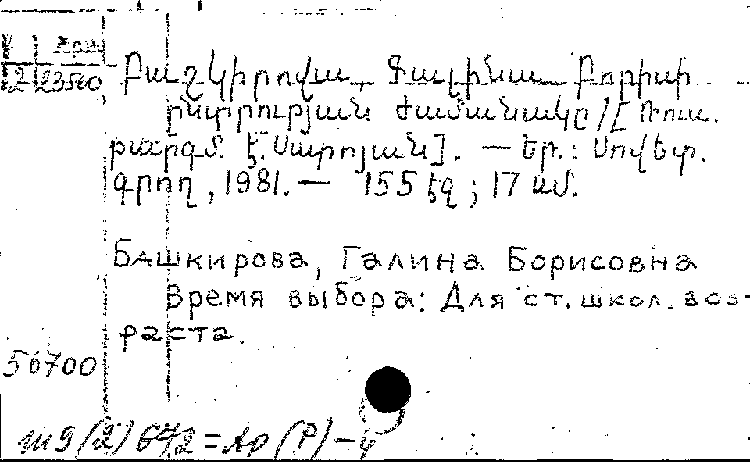 2 23500
Բաշկիրովա Գալինա Բորիսի
Ընտրության ժամանակը / [Ռուս.
թարգմ. Է. Սարոյան]. — Եր.: Սովետ.
գրող, 1981. — 155 էջ; 17 սմ.
Башкирова, Галина Борисовна
Время выбора: Для ст. школ. воз-
раста.
56700